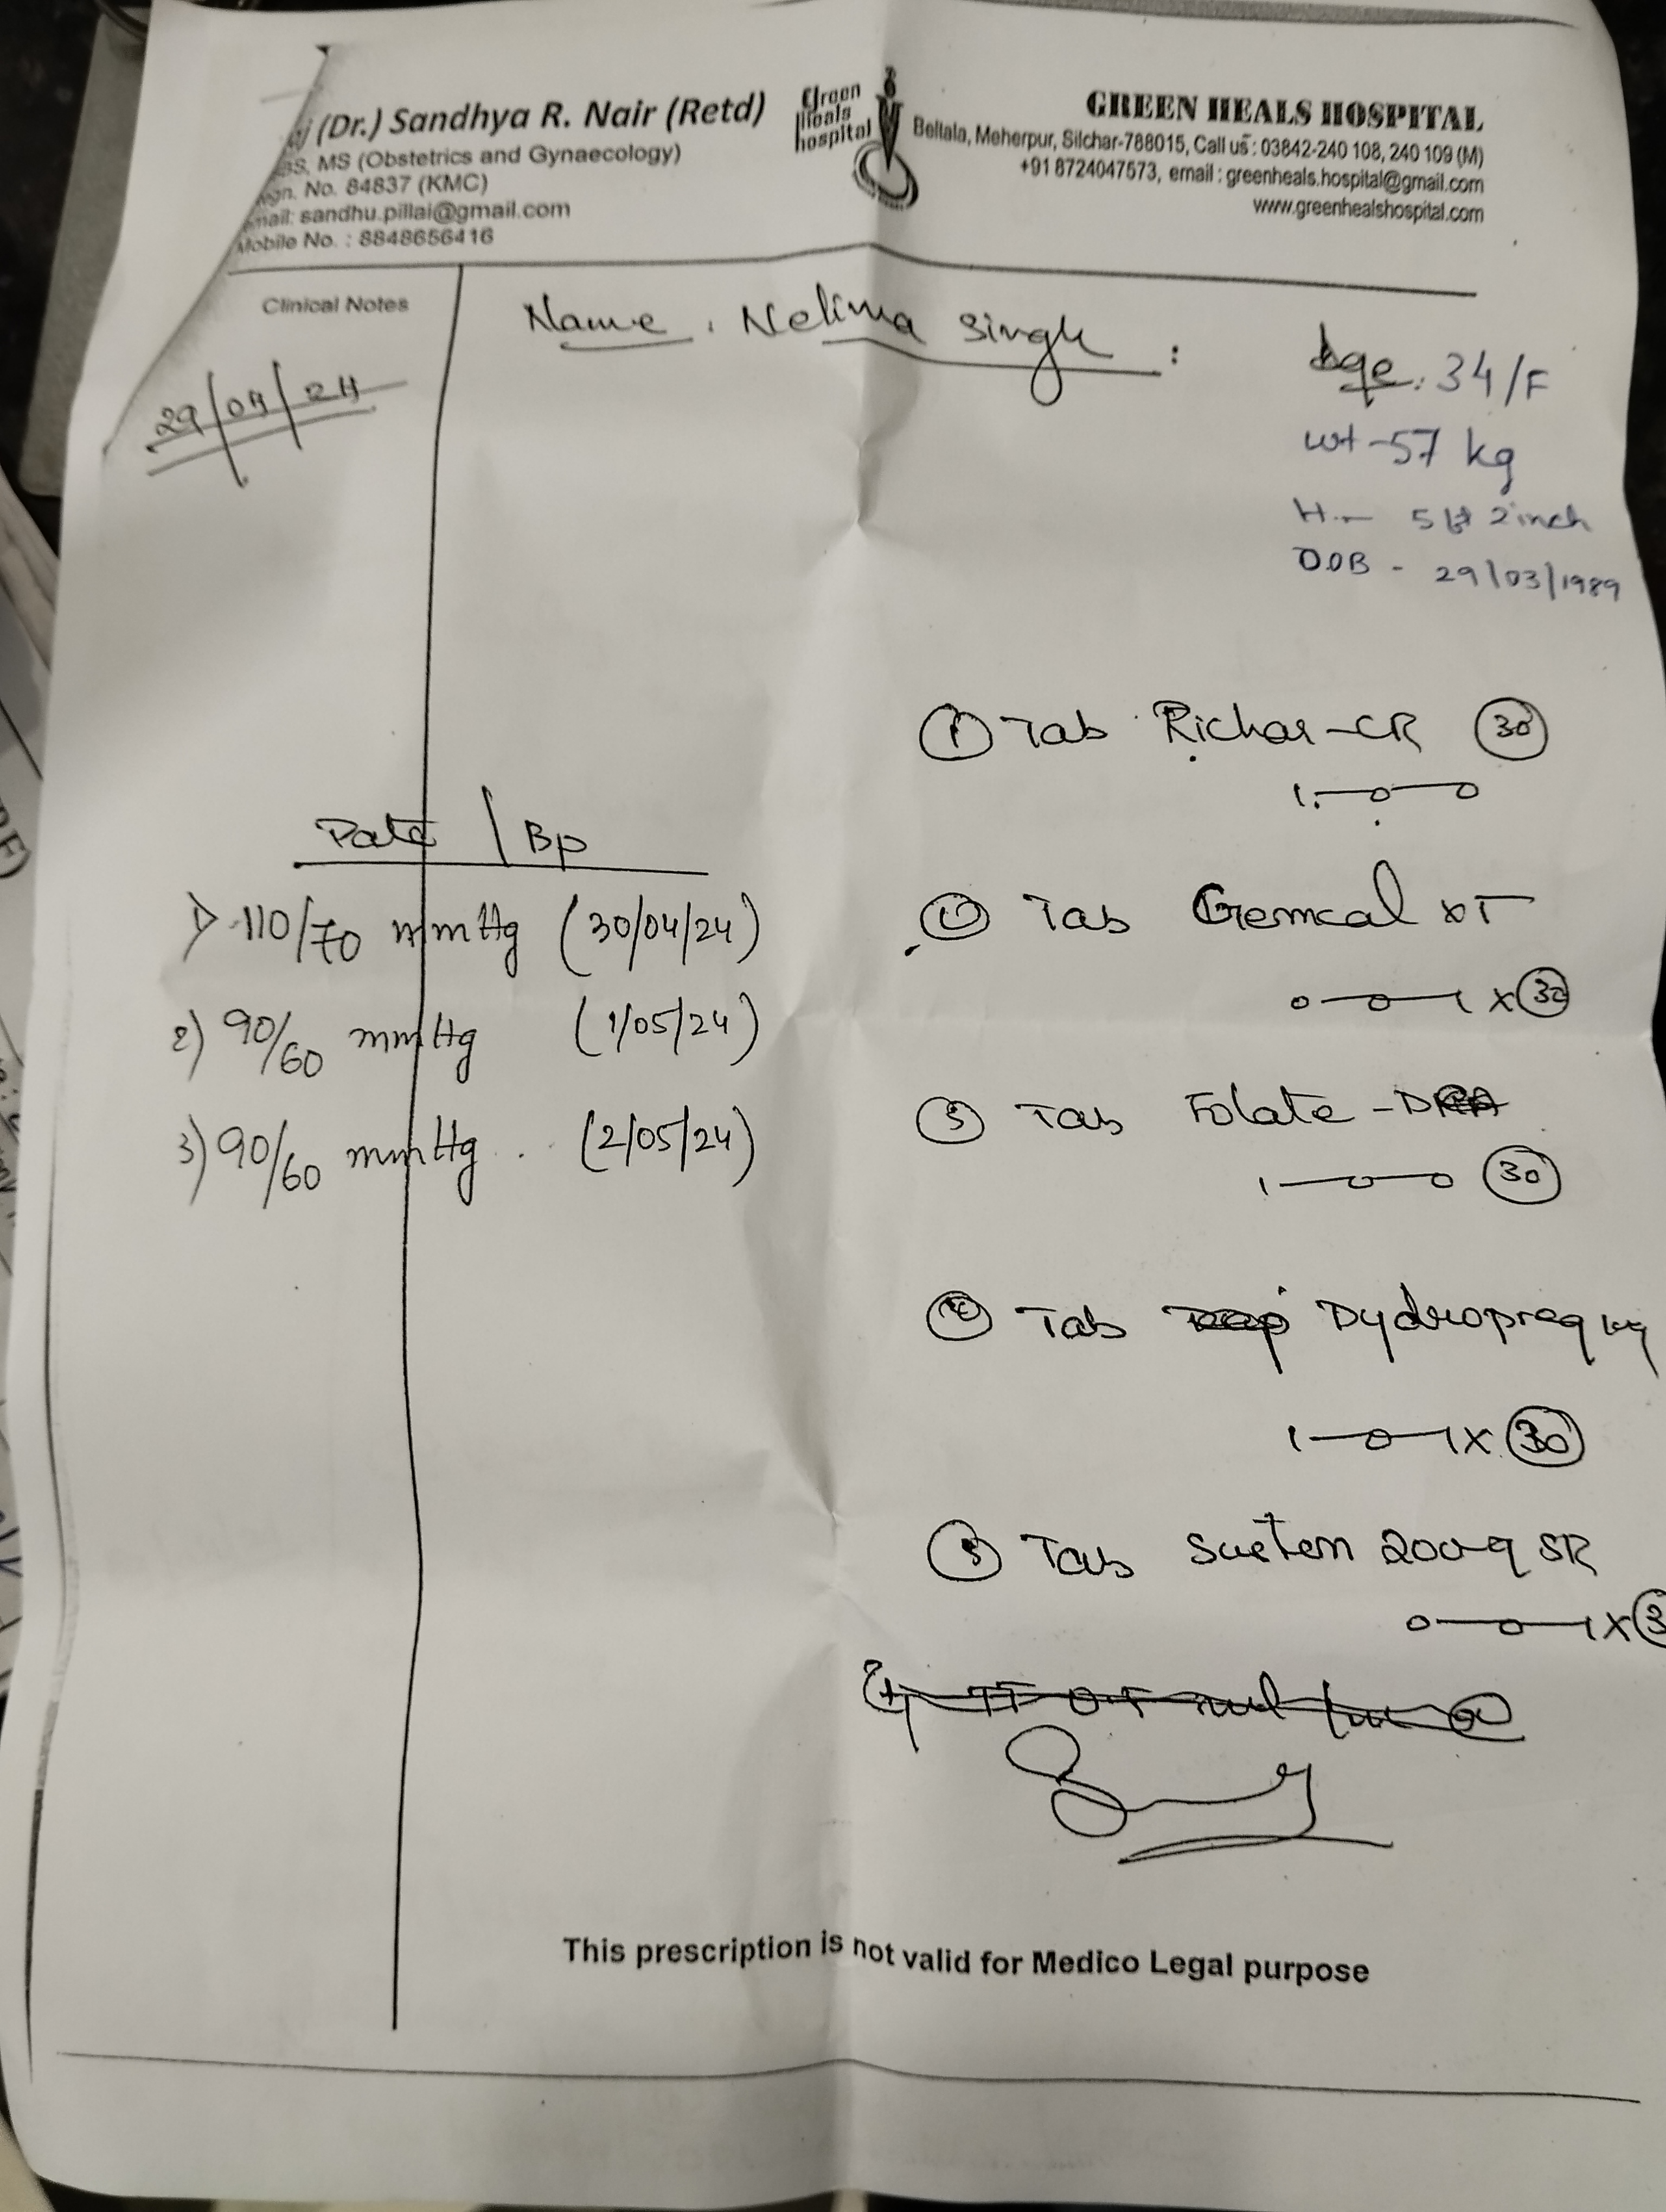 (Dr.) Sandhya R. Nair (Retd)
MS (Obstetrics and Gynaecology)
No. 84837 (KMC)
sandhu.pillai@gmail.com
Mobile No. : 8848656416
Green
Heals
hospital
GREEN HEALS HOSPITAL
Beltala, Meherpur, Silchar-788015, Call us : 03842-240 108, 240 109 (M)
+91 8724047573, email : greenheals.hospital@gmail.com
www.greenhealshospital.com
Clinical Notes
29/04/24
Name : Nelima Singh :
Age : 34/F
wt - 57 kg
H - 5 ft 2 inch
D.O.B - 29/03/1989
Date / Bp
1) 110/70 mmHg (30/04/24)
2) 90/60 mmHg (1/05/24)
3) 90/60 mmHg (2/05/24)
① Tab Richar-CR 30
1-0-0
② Tab Gemcal XT
0-0-1 x 30
③ Tab Folate-D
1-0-0 30
④ Tab Dydropreg
1-0-1 x 30
⑤ Tab SR
0-0-1 x
This prescription is not valid for Medico Legal purpose